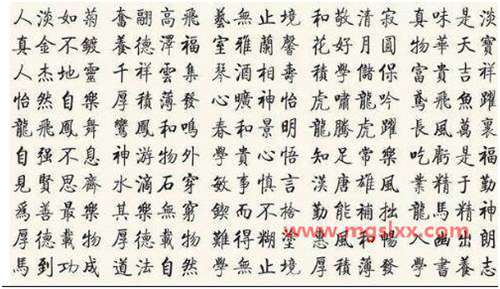 人淡如菊 奮翮高飛 藝無止境 和敬清寂 真味是淡
真金不鍍 養德澤福 室雅蘭馨 花好月圓 物華天寶
人杰地靈 千祥雲集 琴酒相壽 積學儲保 富貴吉祥
怡然自樂 厚積薄發 心曠神怡 虎嘯龍吟 鳶飛魚躍
龍飛鳳舞 鸞鳳和鳴 春和景明 龍騰虎躍 長風萬裏
自强不息 神游物外 學貴心悟 知足常樂 吃虧是福
見賢思齊 水滴石穿 敏事慎言 漢唐雄風 業精于勤
爲善最樂 其樂無窮 鍥而不捨 勤能補拙 龍馬精神
厚德載物 厚德載物 難得糊塗 惠風和暢 人幽出朗
馬到功成 道法自然 學無止境 厚積薄發 學書養志
www.mgslxx.com